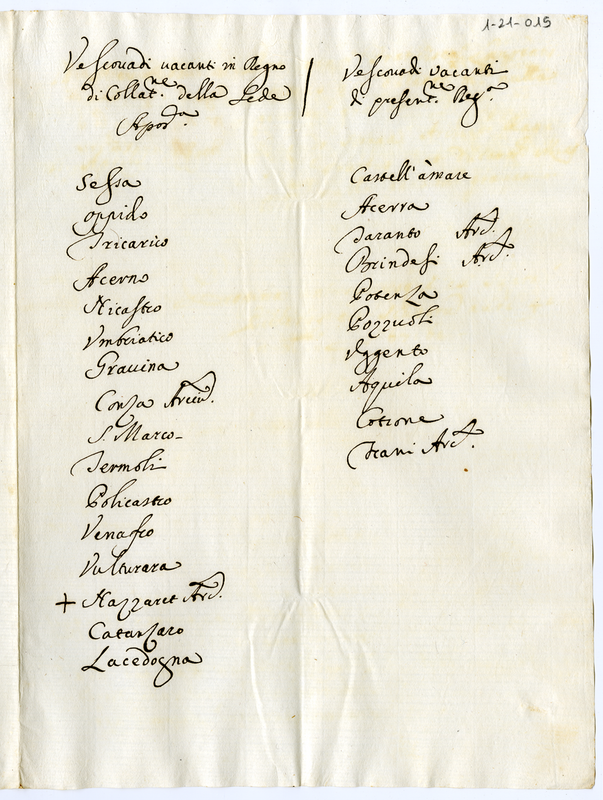 1-21-015
Vescovadi vacanti in Regno
di Collat.ne della Sede
Apos.ca
Sessa
Oppido
Tricarico
Acerno
Nicastro
Umbriatico
Gravina
Conza Arciv.
S. Marco
Termoli
Policastro
Venafro
Vulturara
+ Nazzaret Arc.
Catanzaro
Lacedogna
Vescovadi vacanti
di present.ne Reg.a
Castell'àmare
Acerra
Taranto Arc.
Brindesi Arc.
Potenza
Pozzuoli
Uggento
Aquila
Cotrone
Trani Arc.